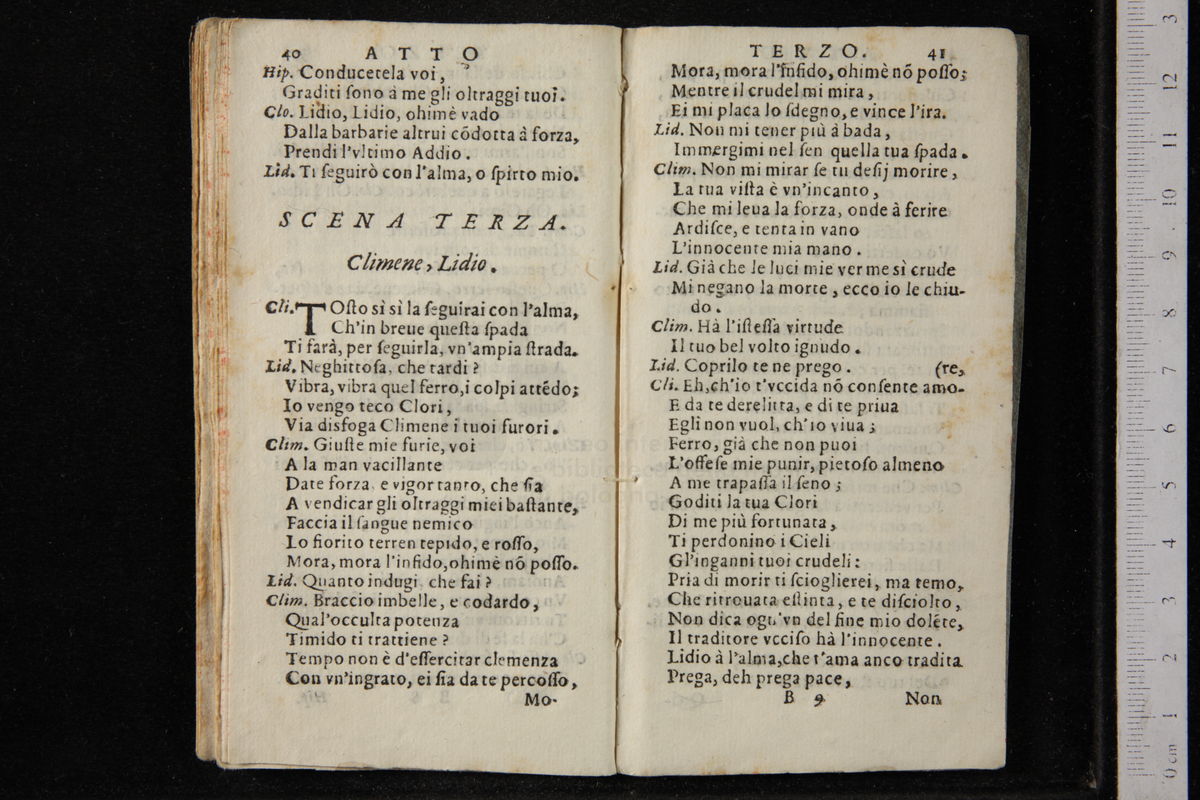 40 ATTO
Hip. Conducetela voi,
Graditi ſono à me gli oltraggi tuoi.
Clo. Lidio, Lidio, ohimè vado
Dalla barbarie altrui cōdotta à forza,
Prendi l'vltimo Addio.
Lid. Ti ſeguirò con l'alma, o ſpirto mio.
SCENA TERZA.
Climene, Lidio.
Cli. TOſto sì sì la ſeguirai con l'alma,
Ch'in breue queſta ſpada
Ti farà, per ſeguirla, vn'ampia ſtrada.
Lid. Neghittoſa, che tardi?
Vibra, vibra quel ferro, i colpi attēdo;
Io vengo teco Clori,
Via disfoga Climene i tuoi furori.
Clim. Giuſte mie furie, voi
A la man vacillante
Date forza, e vigor tanto, che ſia
A vendicar gli oltraggi miei baſtante,
Faccia il ſangue nemico
Lo fiorito terren tepido, e roſſo,
Mora, mora l'infido, ohimè nō poſſo.
Lid. Quanto indugi, che fai?
Clim. Braccio imbelle, e codardo,
Qual'occulta potenza
Timido ti trattiene?
Tempo non è d'eſſercitar clemenza
Con vn'ingrato, ei ſia da te percoſſo,
Mo-
TERZO. 41
Mora, mora l'infido, ohimè nō poſſo;
Mentre il crudel mi mira,
Ei mi placa lo ſdegno, e vince l'ira.
Lid. Non mi tener più à bada,
Immergimi nel ſen quella tua ſpada.
Clim. Non mi mirar ſe tu deſij morire,
La tua viſta è vn'incanto,
Che mi leua la forza, onde à ferire
Ardiſce, e tenta in vano
L'innocente mia mano.
Lid. Già che le luci mie ver me sì crude
Mi negano la morte, ecco io le chiu-
do.
Clim. Hà l'iſteſſa virtude
Il tuo bel volto ignudo.
Lid. Coprilo te ne prego. (re,
Cli. Eh, ch'io t'vccida nō conſente amo-
E da te derelitta, e di te priua
Egli non vuol, ch'io viua;
Ferro, già che non puoi
L'offeſe mie punir, pietoſo almeno
A me trapaſſa il ſeno;
Goditi la tua Clori
Di me più fortunata,
Ti perdonino i Cieli
Gl'inganni tuoi crudeli:
Pria di morir ti ſcioglierei, ma temo,
Che ritrouata eſtinta, e te diſciolto,
Non dica ogn'vn del fine mio dolēte,
Il traditore vcciſo hà l'innocente.
Lidio à l'alma, che t'ama anco tradita
Prega, deh prega pace,
B 9 Non